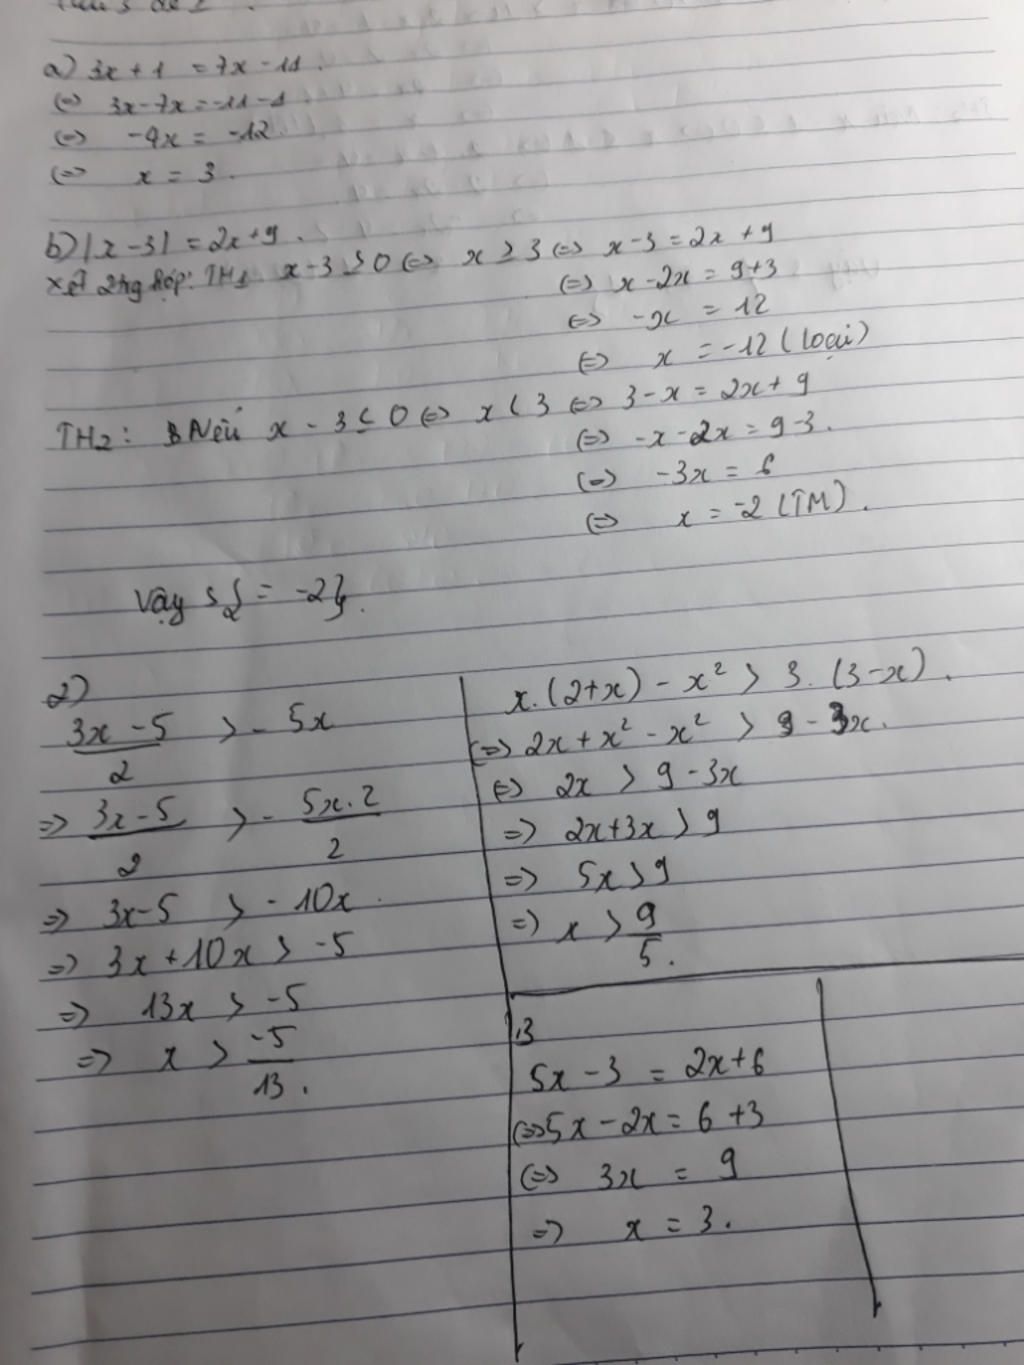 a) 3x + 1 = 7x - 11.
(=) 3x - 7x = -11 - 1
(=) -4x = -12
(=) x = 3.
b) |x - 3| = 2x + 9.
Xét 2 trg hợp: TH1. x - 3 ≥ 0 (=) x ≥ 3 (=) x - 3 = 2x + 9
(=) x - 2x = 9 + 3
(=) -x = 12
(=) x = -12 (loại)
TH2: Nếu x - 3 ≤ 0 (=) x < 3 (=) 3 - x = 2x + 9
(=) -x - 2x = 9 - 3.
(=) -3x = 6
(=) x = -2 (TM).
Vậy S { = -2}.
2)
(3x - 5)/2 > - 5x
=> (3x - 5)/2 > - (5x . 2)/2
=> 3x - 5 > - 10x
=> 3x + 10x > -5
=> 13x > -5
=> x > -5/13.
x . (2 + x) - x² > 3 . (3 - x).
(=> 2x + x² - x² > 9 - 3x.
(=) 2x > 9 - 3x
=> 2x + 3x > 9
=> 5x > 9
=> x > 9/5.
13
5x - 3 = 2x + 6
(=> 5x - 2x = 6 + 3
(=) 3x = 9
=> x = 3.